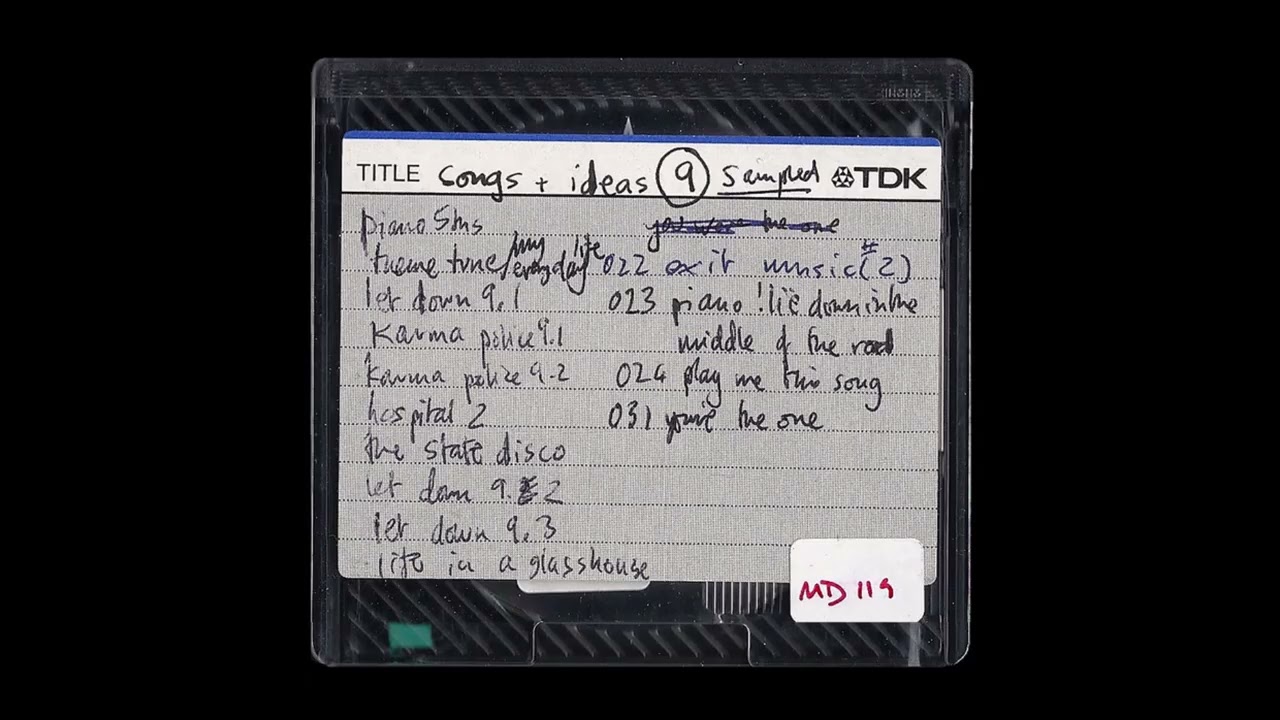 TITLE songs + ideas 9 sampled TDK
piano 5ths
theme tune/my everyday life
let down 9.1
Karma police 9.1
karma police 9.2
hospital 2
the state disco
let down 9.2
let down 9.3
life in a glasshouse
you were the one
022 exit music (2)
023 piano ! lie down in the
middle of the road
024 play me this song
031 you're the one
MD 119